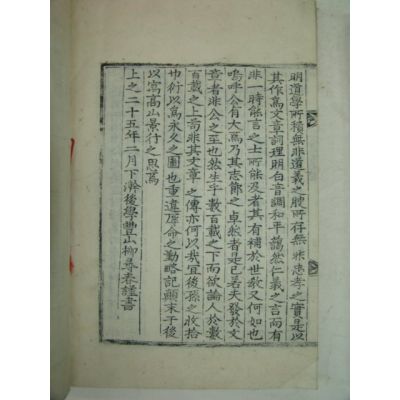 明道學所積無非道義之腴所存無非忠孝之實是以
其作爲文章詞理明白音調和平藹然仁義之言而有
非一時能言之士所能及者其有補於世敎又何如也
嗚呼公有大焉乃其志節之卓然者是已若夫發於文
章者非公之至也然生乎數百載之下而欲論人於數
百載之上苟非其文章之傳亦何以哉宜後孫之收拾
也術以爲永久之圖也重違厚命之勤略記顚末于後
以寓高山景行之思焉
上之二十五年二月下澣後學豊山柳尋春謹書